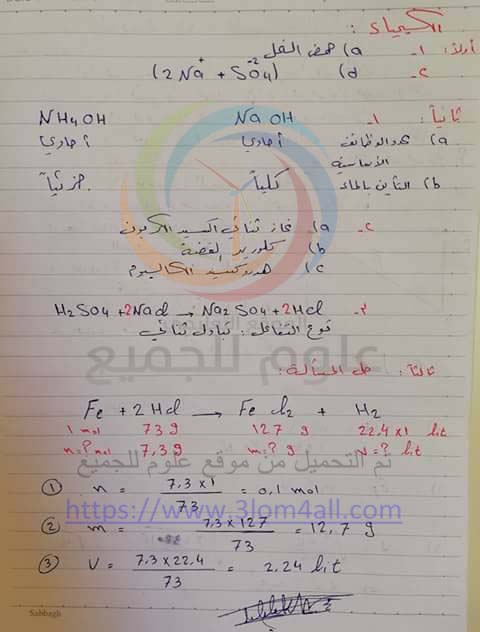 الكيمياء :
أولاً: 1- a) حمض النمل
2- d) (2Na⁺ + SO₄⁻²)
ثانياً: 1- NaOH NH4OH
a) عدد الوظائف الأساسية أحادي أحادي
b) التأين بالماء كلياً جزئياً.
2- a) غاز ثنائي أكسيد الكربون
b) كلوريد الفضة
c) هيدروكسيد الكالسيوم
3- H2SO4 + 2NaCl → Na2SO4 + 2HCl
نوع التفاعل: تبادل ثنائي
علوم للجميع
ثالثاً: حل المسألة:
Fe + 2HCl → FeCl2 + H2
1 mol 73 g 127 g 22.4 x 1 lit
n=? mol 7,3 g m=? g v=? lit
تم التحميل من موقع علوم للجميع
① n = 7,3 x 1 / 73 = 0,1 mol
https://www.3lom4all.com
② m = 7,3 x 127 / 73 = 12,7 g
③ V = 7,3 x 22,4 / 73 = 2,24 lit
Sabbagh